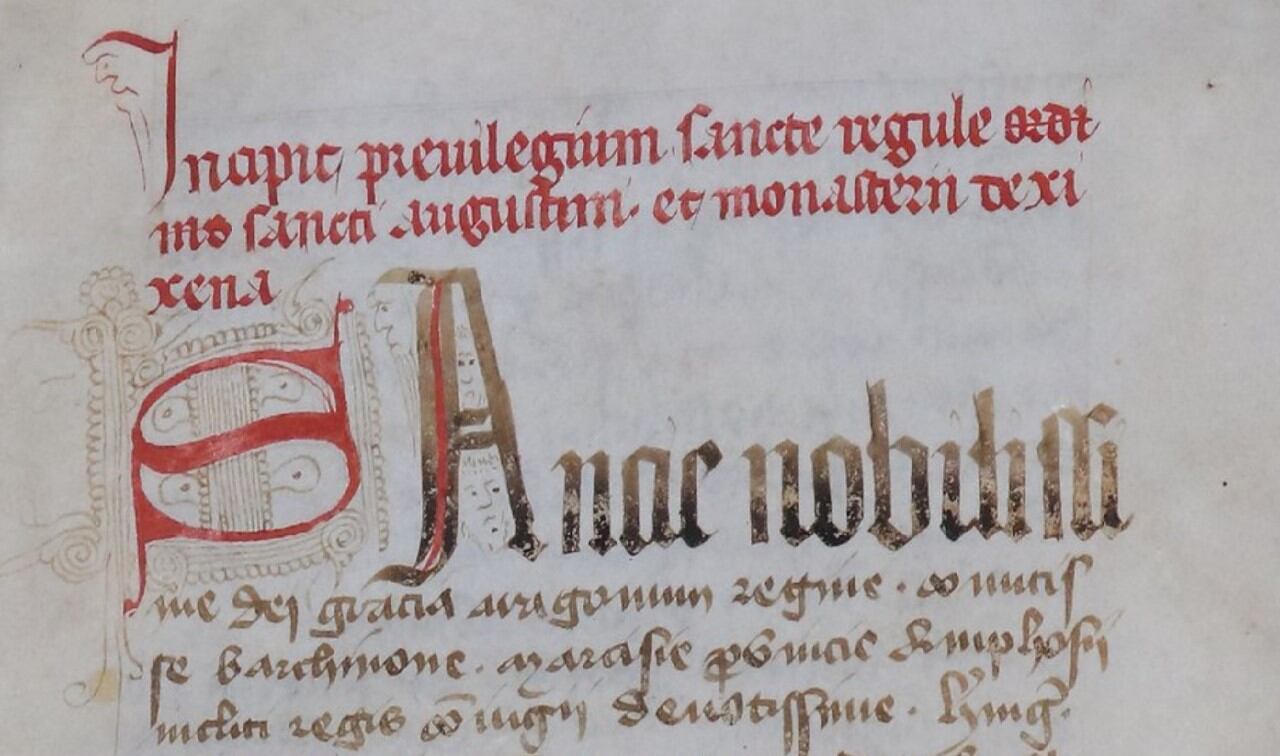 Incipit preuilegium sancte regule ordi
nis sancti augustini · et monasterii de xi
xena
SAncae nobilissi
me dei gracia aragonum regine · comitis
se barchinone · marcisie prouincie Amphosii
incliti regis coniugi deuotissime ·